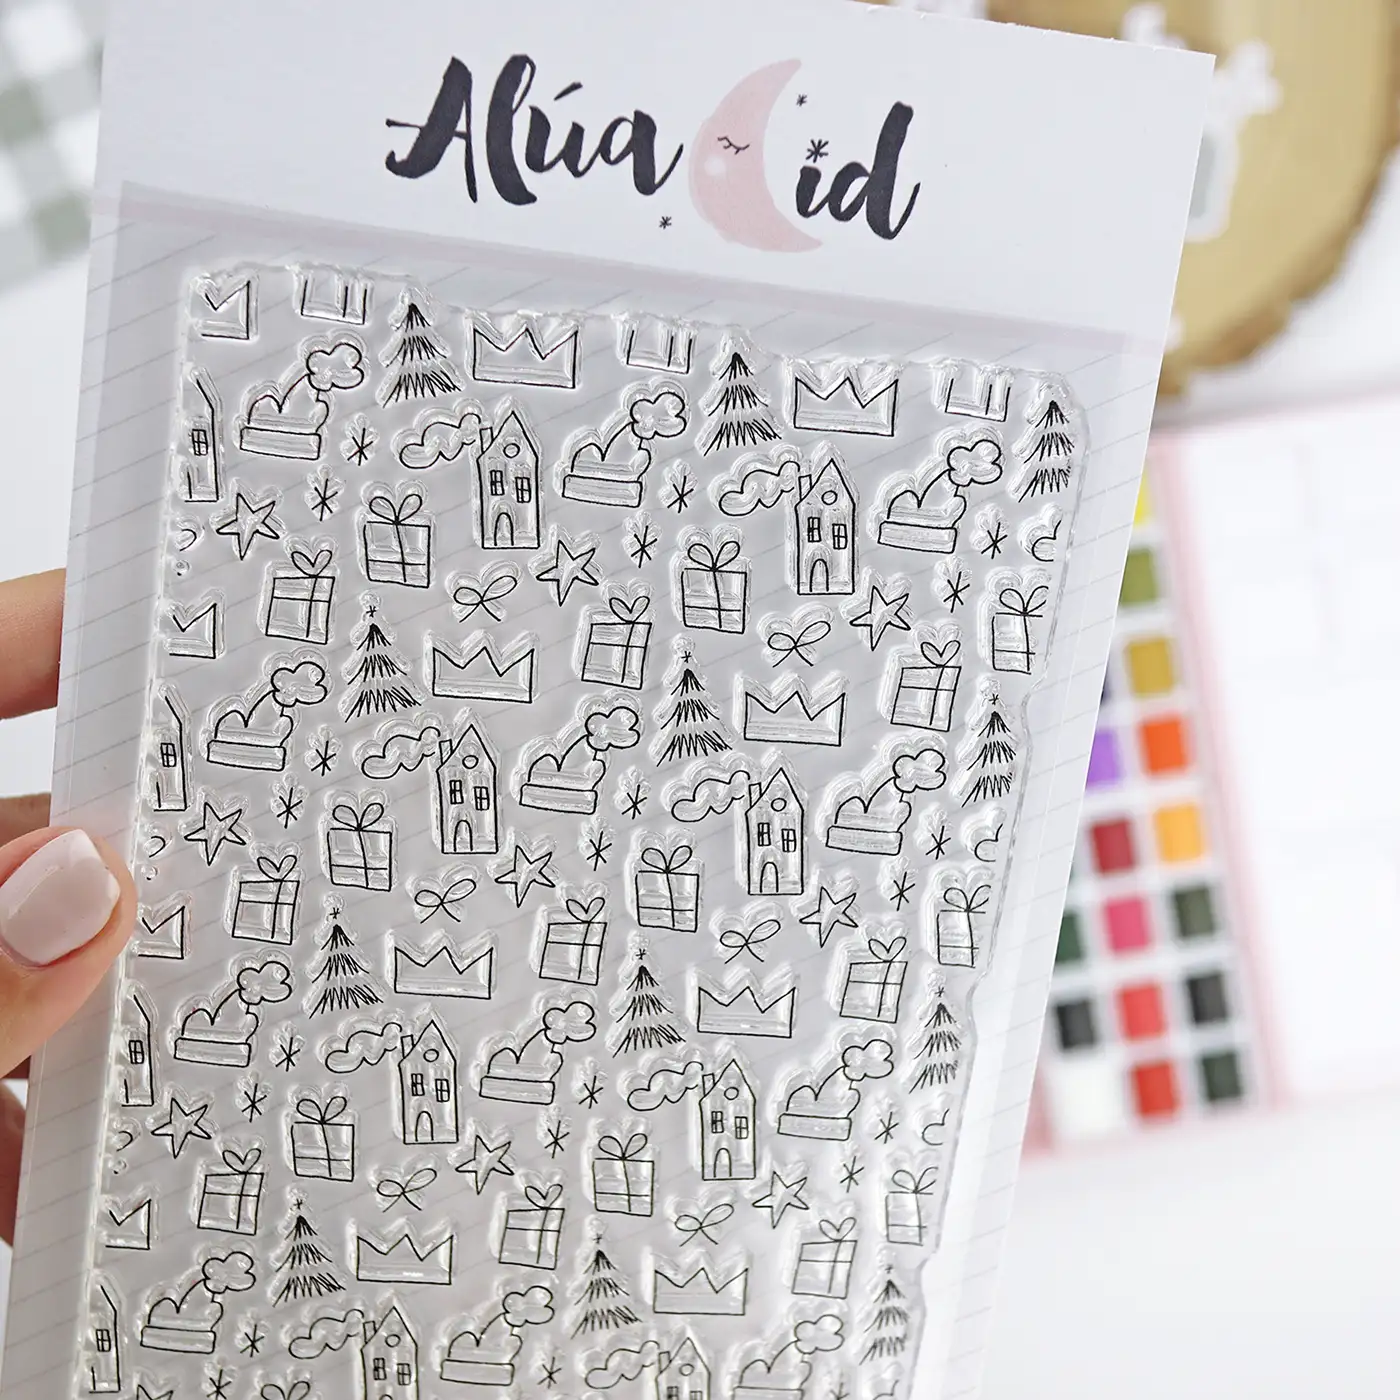 Alúa Cid